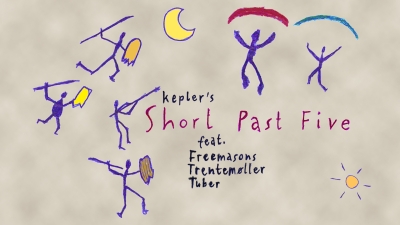 kepler's
Short Past Five
feat.
Freemasons
Trentemøller
Tuber